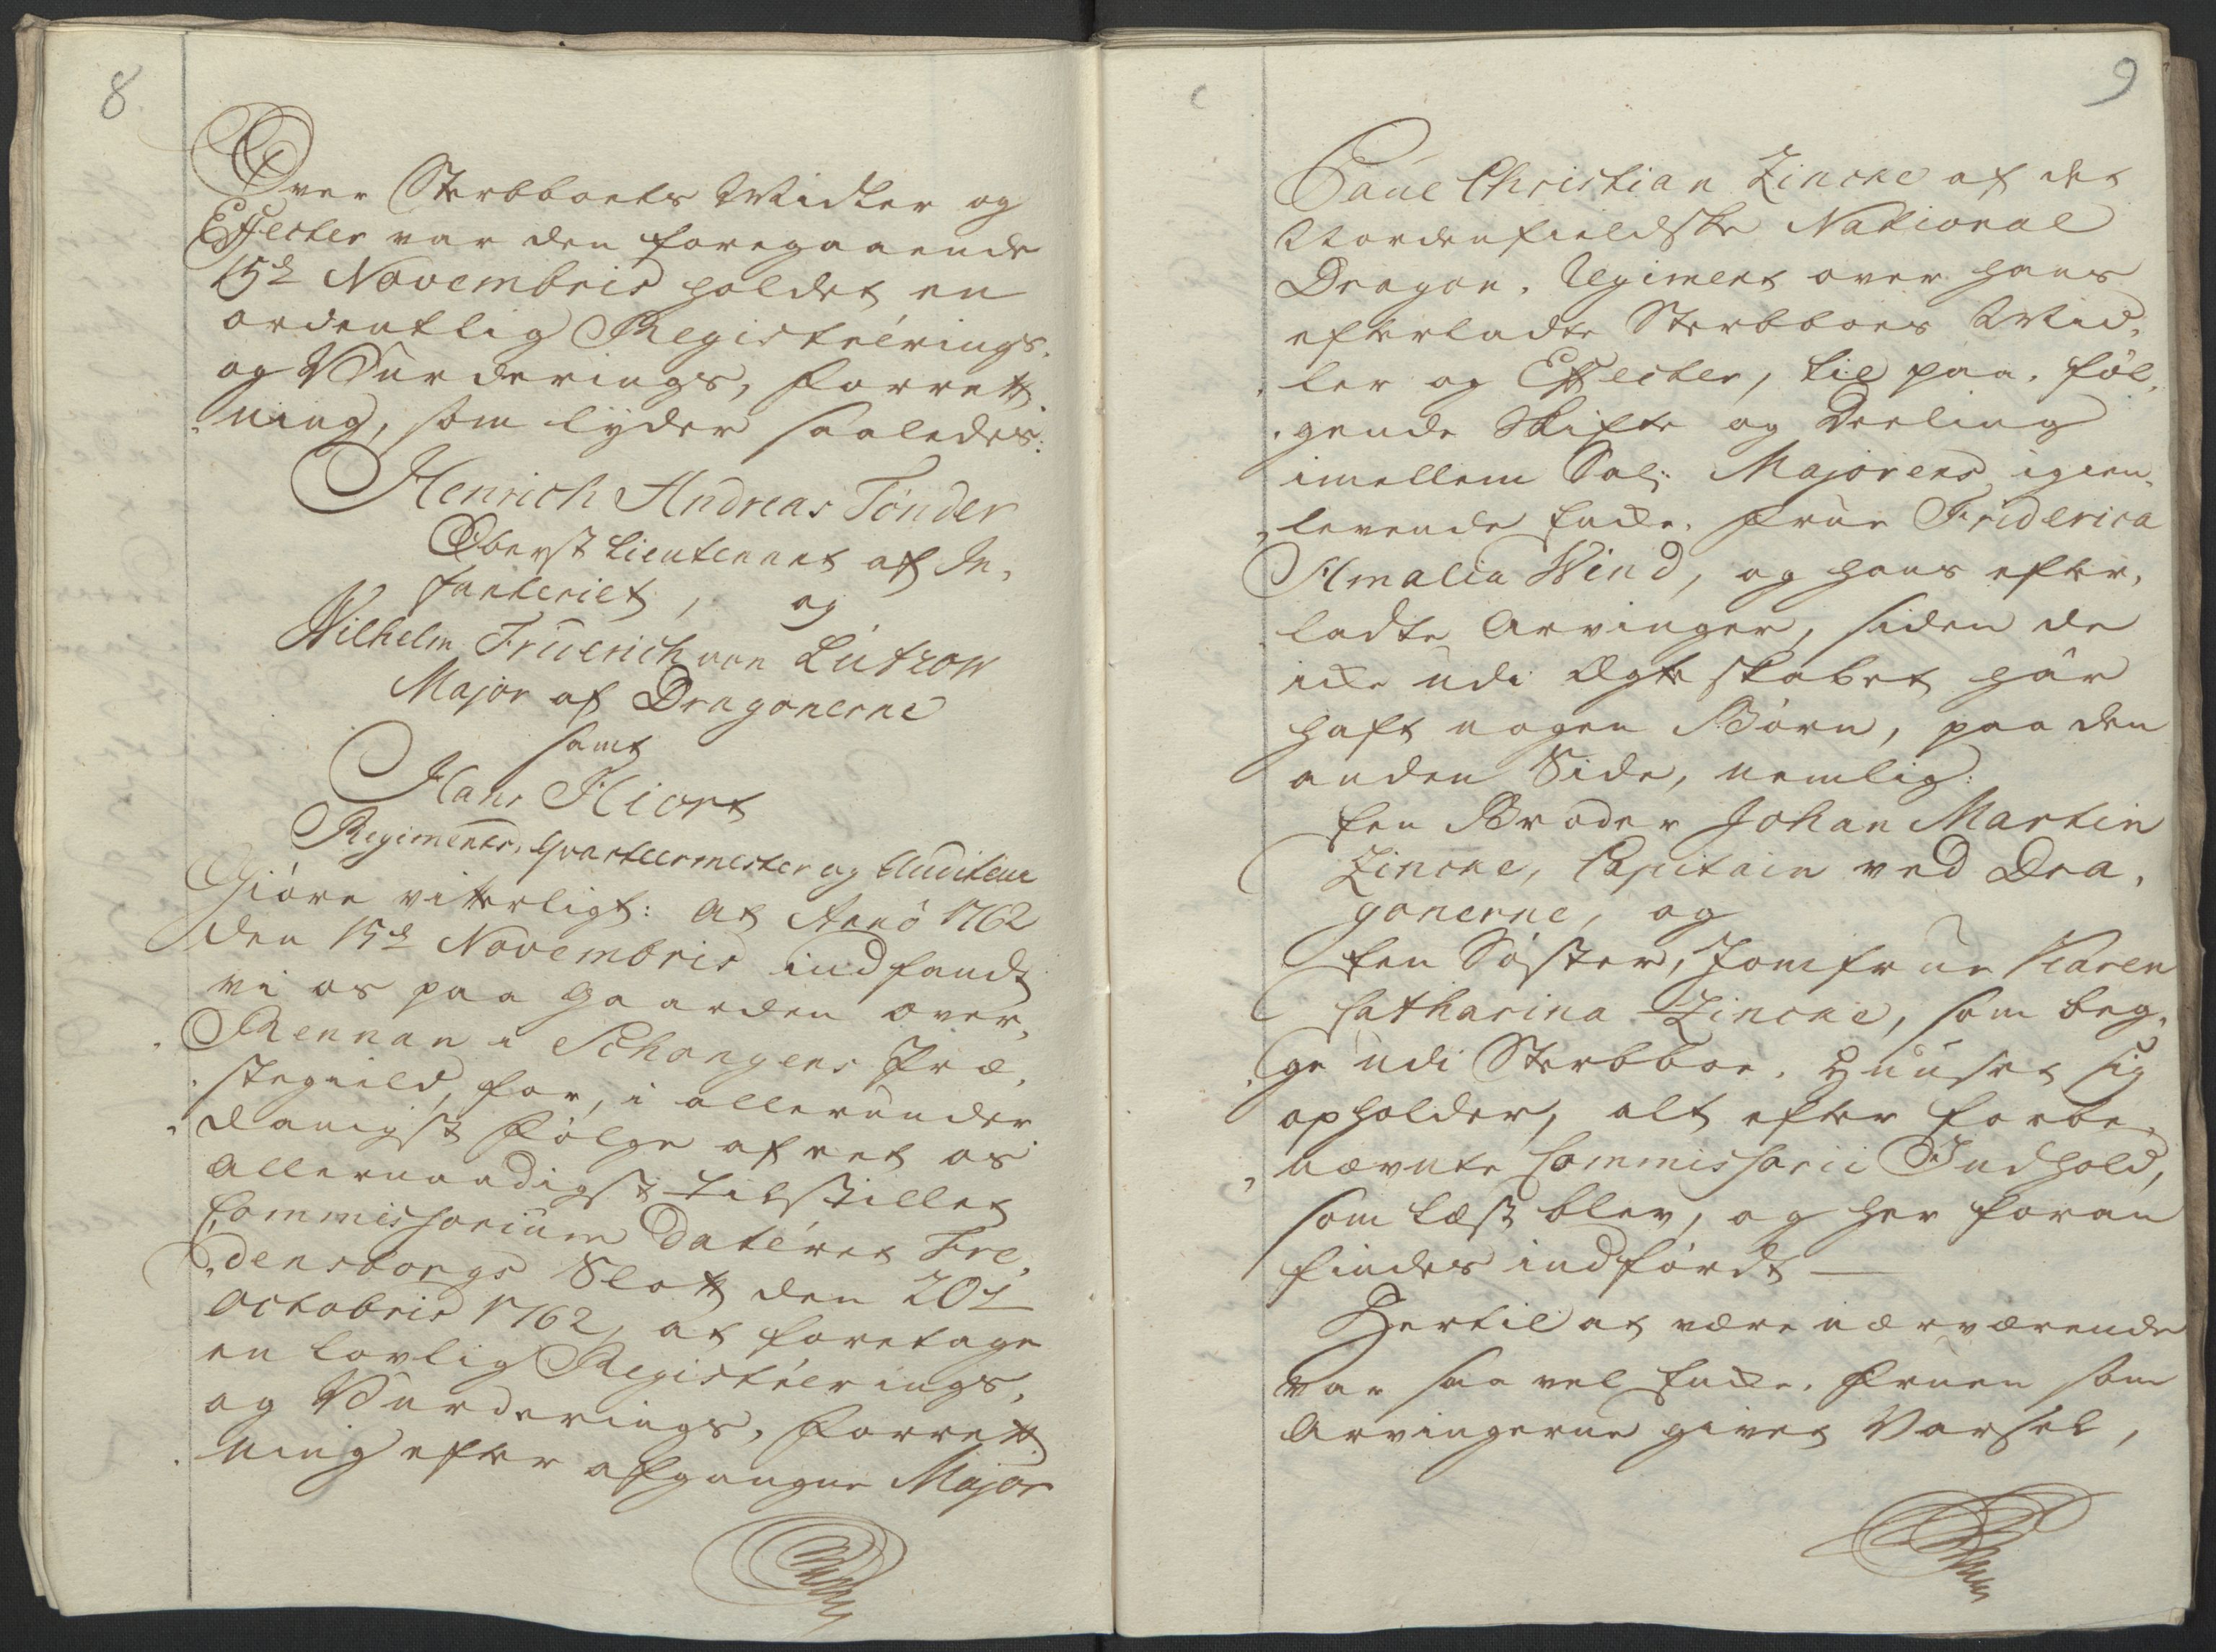 8
Over Sterbboets Midler og
Effecter var den foregaaende
15de Novembris holdet en
ordentlig Registrérings-
og Vurderings, Forrett-
ning, som lyder saaledes:
Henrich Andreas Tönder
Oberst Lieutenant af In-
fanteriet, og
Wilhelm Friderich von Lützow
Major af Dragonerne
samt
Hans Hiort
Regiments-Qvarteermester og Auditeur
Giöre vitterligt: At Annö 1762
den 15de Novembris indfandt
vi os paa Gaarden Over-
Rennan i Schongens Præ-
stegield, for, i allerunder-
danigst Fölge af det os
Allernaadigst tilstillet
Commissorium Datéret Fre-
densborgs Slott den 20de
Octobris 1762, at foretage
en lovlig Registrérings-
og Vurderings, Forrett-
ning efter afgangne Major
9
Paul Christian Zincke af det
Nordenfieldske National
Dragon-Regiment over hans
efterladte Sterbboes Mid-
ler og Effecter, til paa-föl-
gende Skifte og Deeling
imellem Sal: Majorens igien-
levende Encke-Frue Friderica
Amalia Wind, og hans efter-
ladte Arvinger, siden de
icke udi Ægteskabet har
haft nogen Börn, paa den
anden Side, nemlig:
Een Broder Johan Martin
Zincke, Capitain ved Dra-
gonerne, og
Een Söster, Jomfrue Karen
Catharina Zincke, som beg-
ge udi Sterbboe-Huuset sig
opholder, alt efter forbe-
nævnte Commissorii Indhold,
som læst blev, og her foran
findes indfördt —
Hertil at være nærværende
var saa vel Encke-Fruen som
Arvingerne givet Varsel,